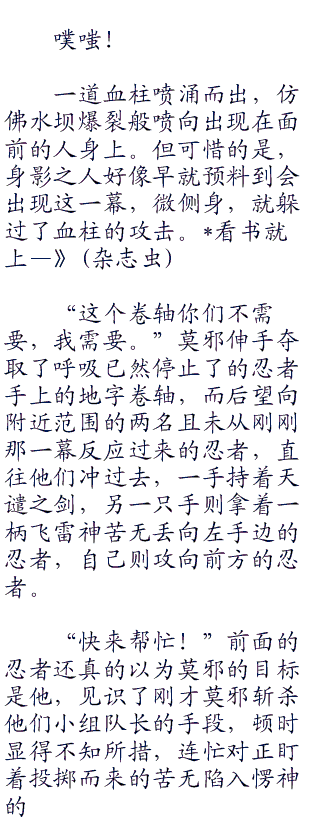 噗嗤！
一道血柱喷涌而出，仿
佛水坝爆裂般喷向出现在面
前的人身上。但可惜的是，
身影之人好像早就预料到会
出现这一幕，微侧身，就躲
过了血柱的攻击。*看书就
上—》(杂志虫)
“这个卷轴你们不需
要，我需要。”莫邪伸手夺
取了呼吸已然停止了的忍者
手上的地字卷轴，而后望向
附近范围的两名且未从刚刚
那一幕反应过来的忍者，直
往他们冲过去，一手持着天
谴之剑，另一只手则拿着一
柄飞雷神苦无丢向左手边的
忍者，自己则攻向前方的忍
者。
“快来帮忙！”前面的
忍者还真的以为莫邪的目标
是他，见识了刚才莫邪斩杀
他们小组队长的手段，顿时
显得不知所措，连忙对正盯
着投掷而来的苦无陷入愣神
的